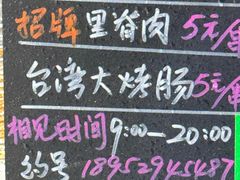 招牌里脊肉 5元/串
台湾大烤肠5元/
相见时间9:00—20:00
18952945487